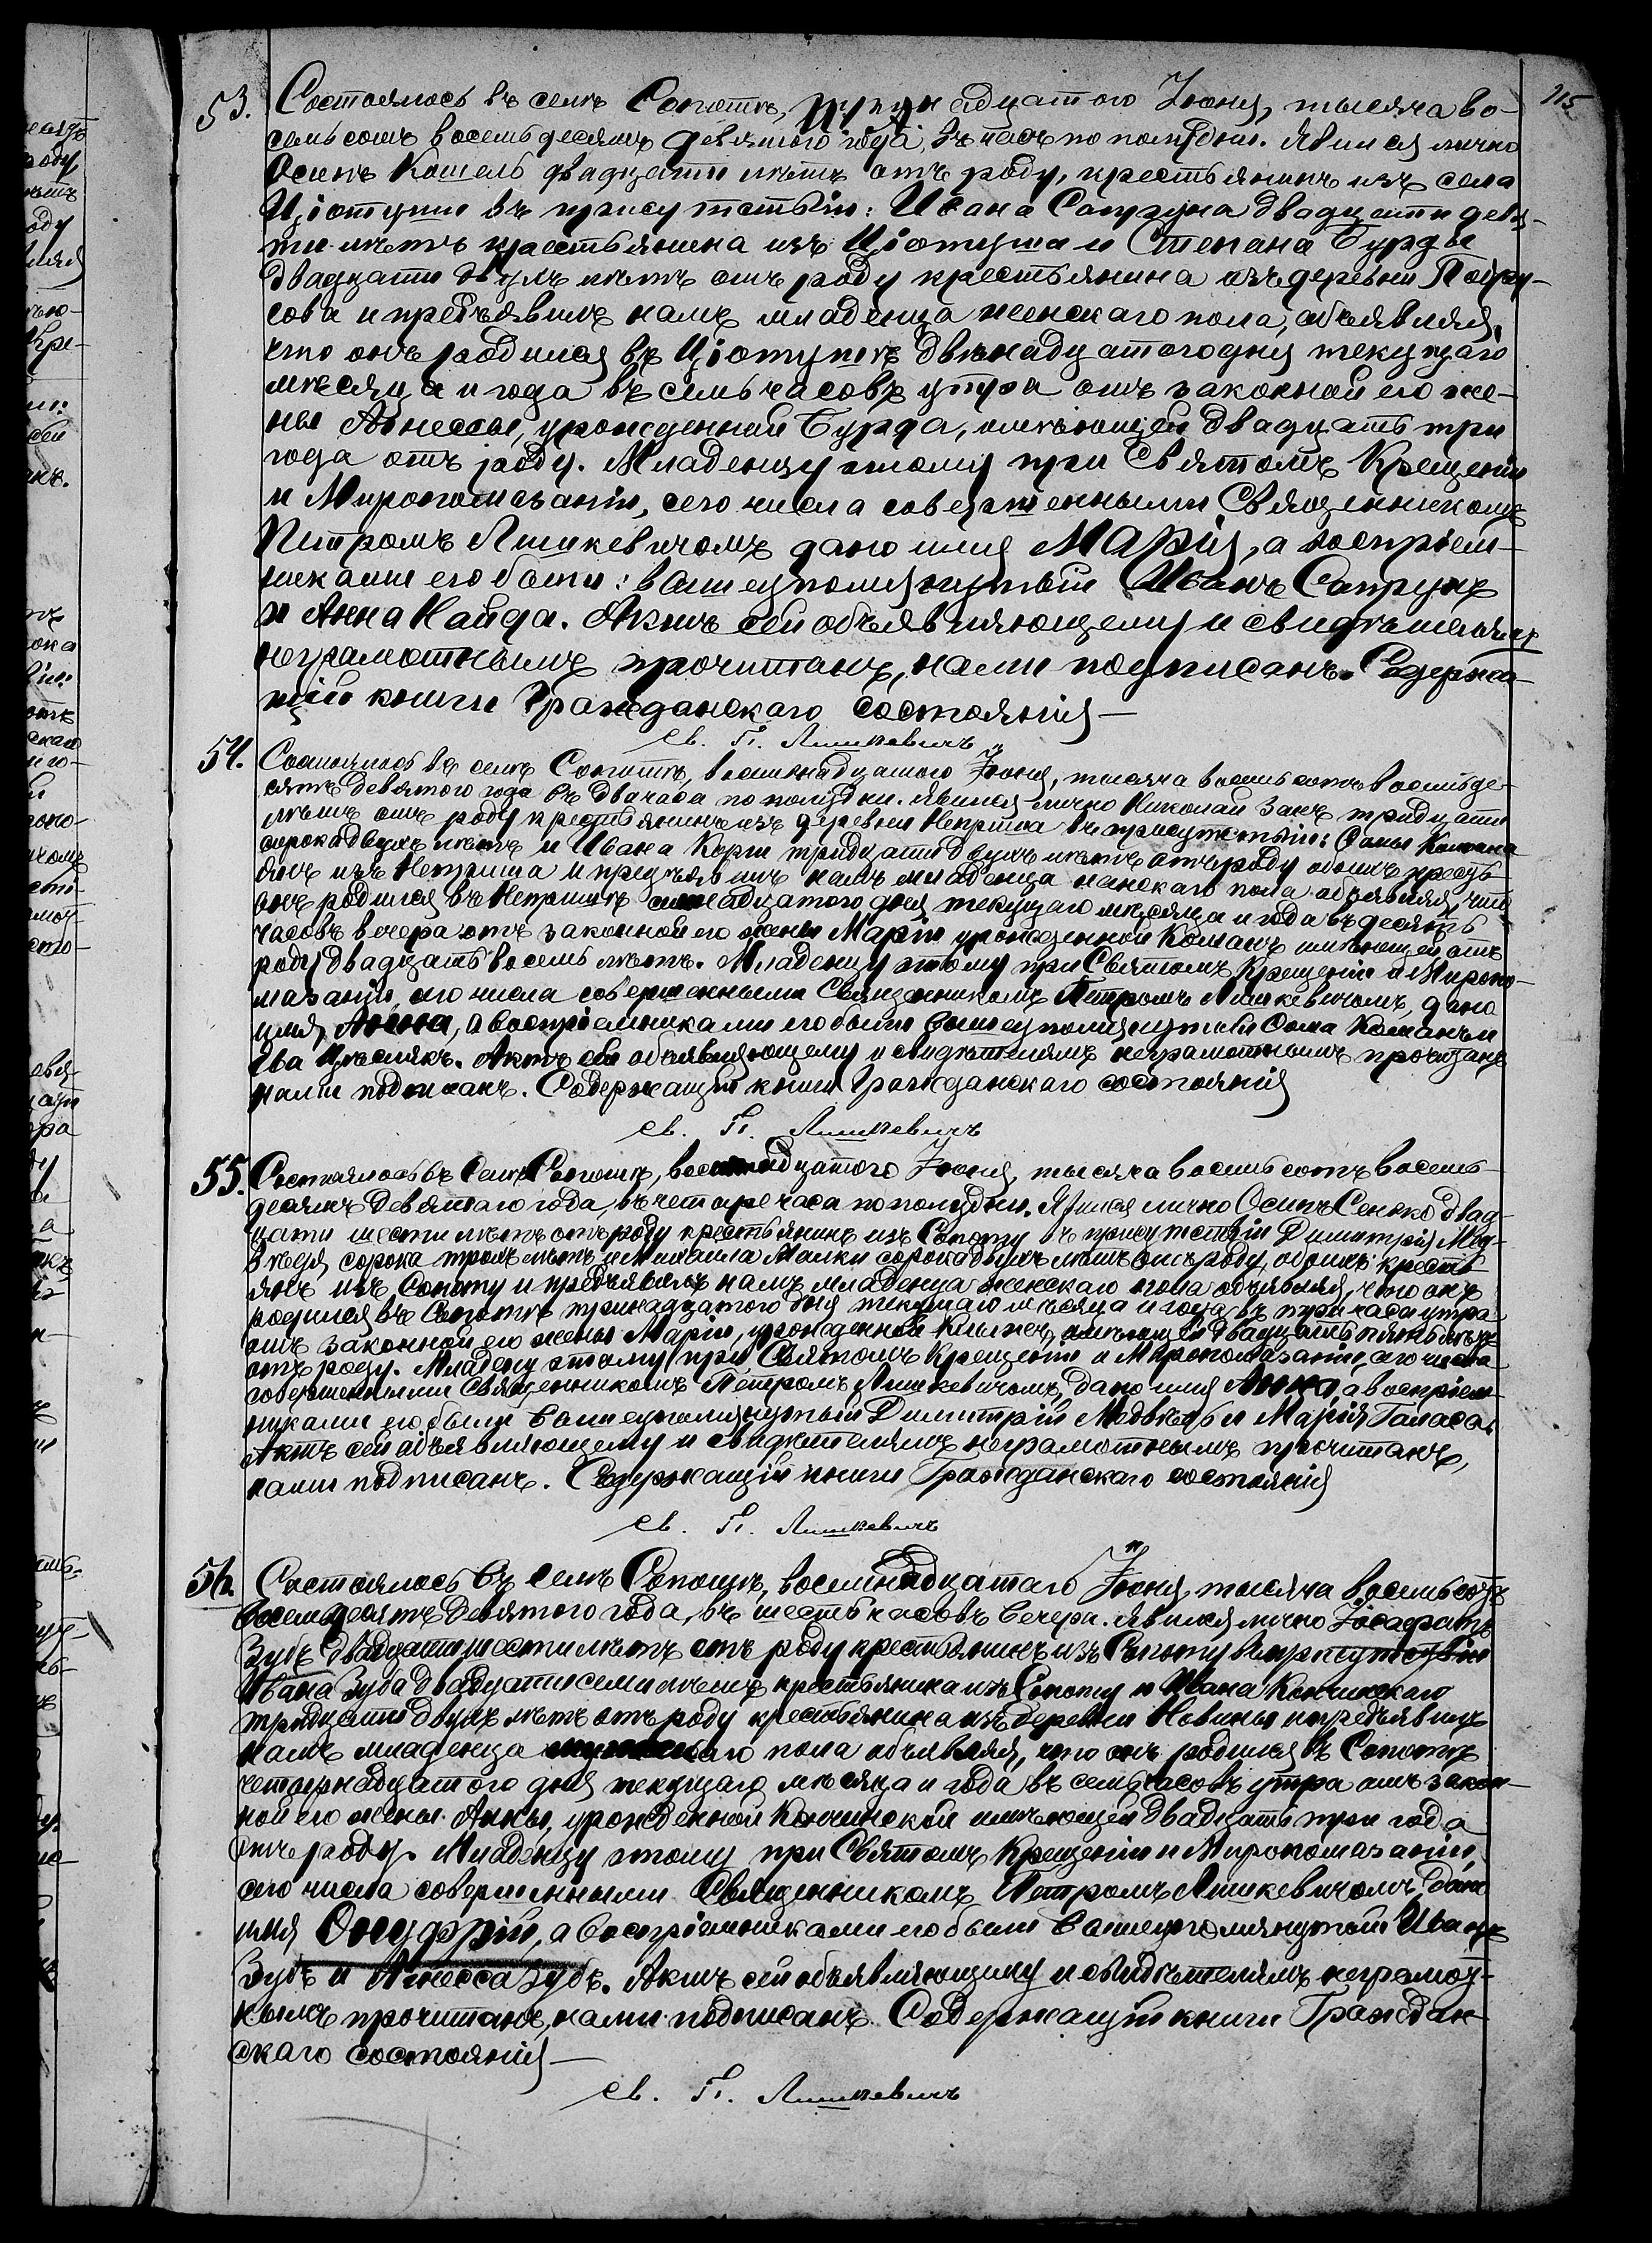 115
53. Состоялось въ селѣ Сопотѣ, адцатого Іюня, тысяча во-
семьсотъ восемьдесятъ девятого года, въ часъ по полудни. Явился лично
Осипъ Кошель двадцати лѣтъ отъ роду, крестьянинъ изъ села
Ціотуши въ присутствіи: Ивана Сапруна двадцати девя-
ти лѣтъ крестьянина изъ Ціотуша и Степана Бурды
двадцати двухъ лѣтъ отъ роду крестьянина изъ деревни
сова и предъявилъ намъ младенца женскаго пола, объявляя,
что онъ родился въ Ціотушѣ двѣнадцатого дня текущаго
мѣсяца и года въ семь часовъ утра отъ законной его же-
ны Агнессы, урожденной Бурда, имѣющей двадцать три
года отъ роду. Младенцу этому при Святомъ Крещеніи
и Миропомазаніи, сего числа совершенными Священникомъ
Петромъ Лишкевичомъ дано имя Марія, а воспріем-
никами его были: вышеупомянутый Иванъ Сапрунъ
и Анна Кайда. Актъ сей объявляющему и свидѣтелямъ
неграмотнымъ прочитанъ, нами подписанъ. Содержа-
щій книги Гражданскаго состоянія —
Св. П. Лишкевичъ
54. Состоялось въ селѣ Сопотѣ, восемнадцатого Іюня, тысяча восемьсотъ восемьде-
сятъ девятого года въ два часа по полудни. Явился лично Николай Занъ тридцати
лѣтъ отъ роду крестьянинъ изъ деревни Неприша въ присутствіи: Фомы Комана
сорока двухъ лѣтъ и Ивана Корги тридцати двухъ лѣтъ отъ роду обоихъ кресть-
янъ изъ Неприша и предъявилъ намъ младенца женскаго пола объявляя, что
онъ родился въ Непришѣ надцатого дня текущаго мѣсяца и года въ десять
часовъ вечера отъ законной его жены Маріи урожденной Команъ имѣющей отъ
роду двадцать восемь лѣтъ. Младенцу этому при Святомъ Крещеніи и Миропо-
мазаніи, сего числа совершенными Священникомъ Петромъ Лишкевичомъ, дано
имя Анна, а воспріемниками его были вышеупомянутый Фома Команъ и
Ева Цѣсликъ. Актъ сей объявляющему и свидѣтелямъ неграмотнымъ прочитанъ
нами подписанъ. Содержащій книги Гражданскаго состоянія
Св. П. Лишкевичъ
55. Состоялось въ Селѣ Сопотѣ, адцатого Іюня, тысяча восемьсотъ восемь-
десятъ девятаго года, въ четыре часа по полудни. Явился лично Осипъ Сенько двад-
цати шести лѣтъ отъ роду крестьянинъ изъ Сопоту въ присутствіи Димитрія Мед-
вѣдя, сорока трехъ лѣтъ и Михаила Малки сорока двухъ лѣтъ отъ роду, обоихъ кресть-
янъ изъ Сопоту и предъявилъ намъ младенца женскаго пола объявляя, что онъ
родился въ Сопотѣ тринадцатого дня текущаго мѣсяца и года, въ три часа утра
отъ законной его жены Маріи, урожденной имѣющей двадцать пять лѣтъ
отъ роду. Младенцу этому при Святомъ Крещеніи и Миропомазаніи, сего числа
совершенными Священникомъ Петромъ Лишкевичомъ, дано имя Анна, а воспріем-
никами его были вышеупомянутый Димитрій Медвѣдь и Марія Галаса.
Актъ сей объявляющему и свидѣтелямъ неграмотнымъ прочитанъ,
нами подписанъ. Содержащій книги Гражданскаго состоянія
Св. П. Лишкевичъ
56. Состоялось въ Селѣ Сопотѣ, восемнадцатаго Іюня, тысяча восемьсотъ
восемьдесятъ девятого года, въ шесть часовъ вечера. Явился лично Іосафатъ
Зубъ двадцати шести лѣтъ отъ роду крестьянинъ изъ Сопоту въ присутствіи
Ивана Зуба двадцати семи лѣтъ крестьянина изъ Сопоту и Ивана Кончинскаго
тридцати двухъ лѣтъ отъ роду крестьянина изъ деревни Новины и предъявилъ
намъ младенца мужескаго пола объявляя, что онъ родился въ Сопотѣ
четырнадцатого дня текущаго мѣсяца и года въ семь часовъ утра отъ закон-
ной его жены Анны, урожденной Кончинской имѣющей двадцать три года
отъ роду. Младенцу этому при Святомъ Крещеніи и Миропомазаніи,
сего числа совершенными Священникомъ Петромъ Лишкевичомъ, дано
имя Онуфрій, а воспріемниками его были вышеупомянутый Иванъ
Зубъ и Агнесса Зубъ. Актъ сей объявляющему и свидѣтелямъ неграмот-
нымъ прочитанъ, нами подписанъ. Содержащій книги Граждан-
скаго состоянія —
Св. П. Лишкевичъ